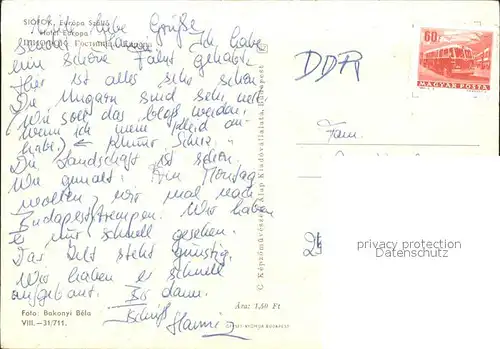 SIÓFOK, Európa Szálló
Hotel Europa
Гостиница Европа
liebe Grüße
Ich habe
eine schöne Fahrt gehabt.
Hier ist alles sehr schön.
Die Ungarn sind sehr nett.
(Wie soll das bloß werden,
wenn ich mein Kleid an-
habe!)
Die Landschaft ist schön.
Wie gemalt. Am Montag
wollten wir mal nach
Budapest trempen. Wir haben
es nur schnell gesehen.
Das Zelt steht günstig.
Wir haben es schnell
aufgebaut. Bis dann.
Tschüß
Foto: Bakonyi Béla
VIII.—31/711.
Ára: 1,50 Ft
OFFSET-NYOMDA BUDAPEST
© Képzőművészeti Alap Kiadóvállalata, Budapest
DDR
60f
MAGYAR POSTA
Fam.
privacy protection
Datenschutz